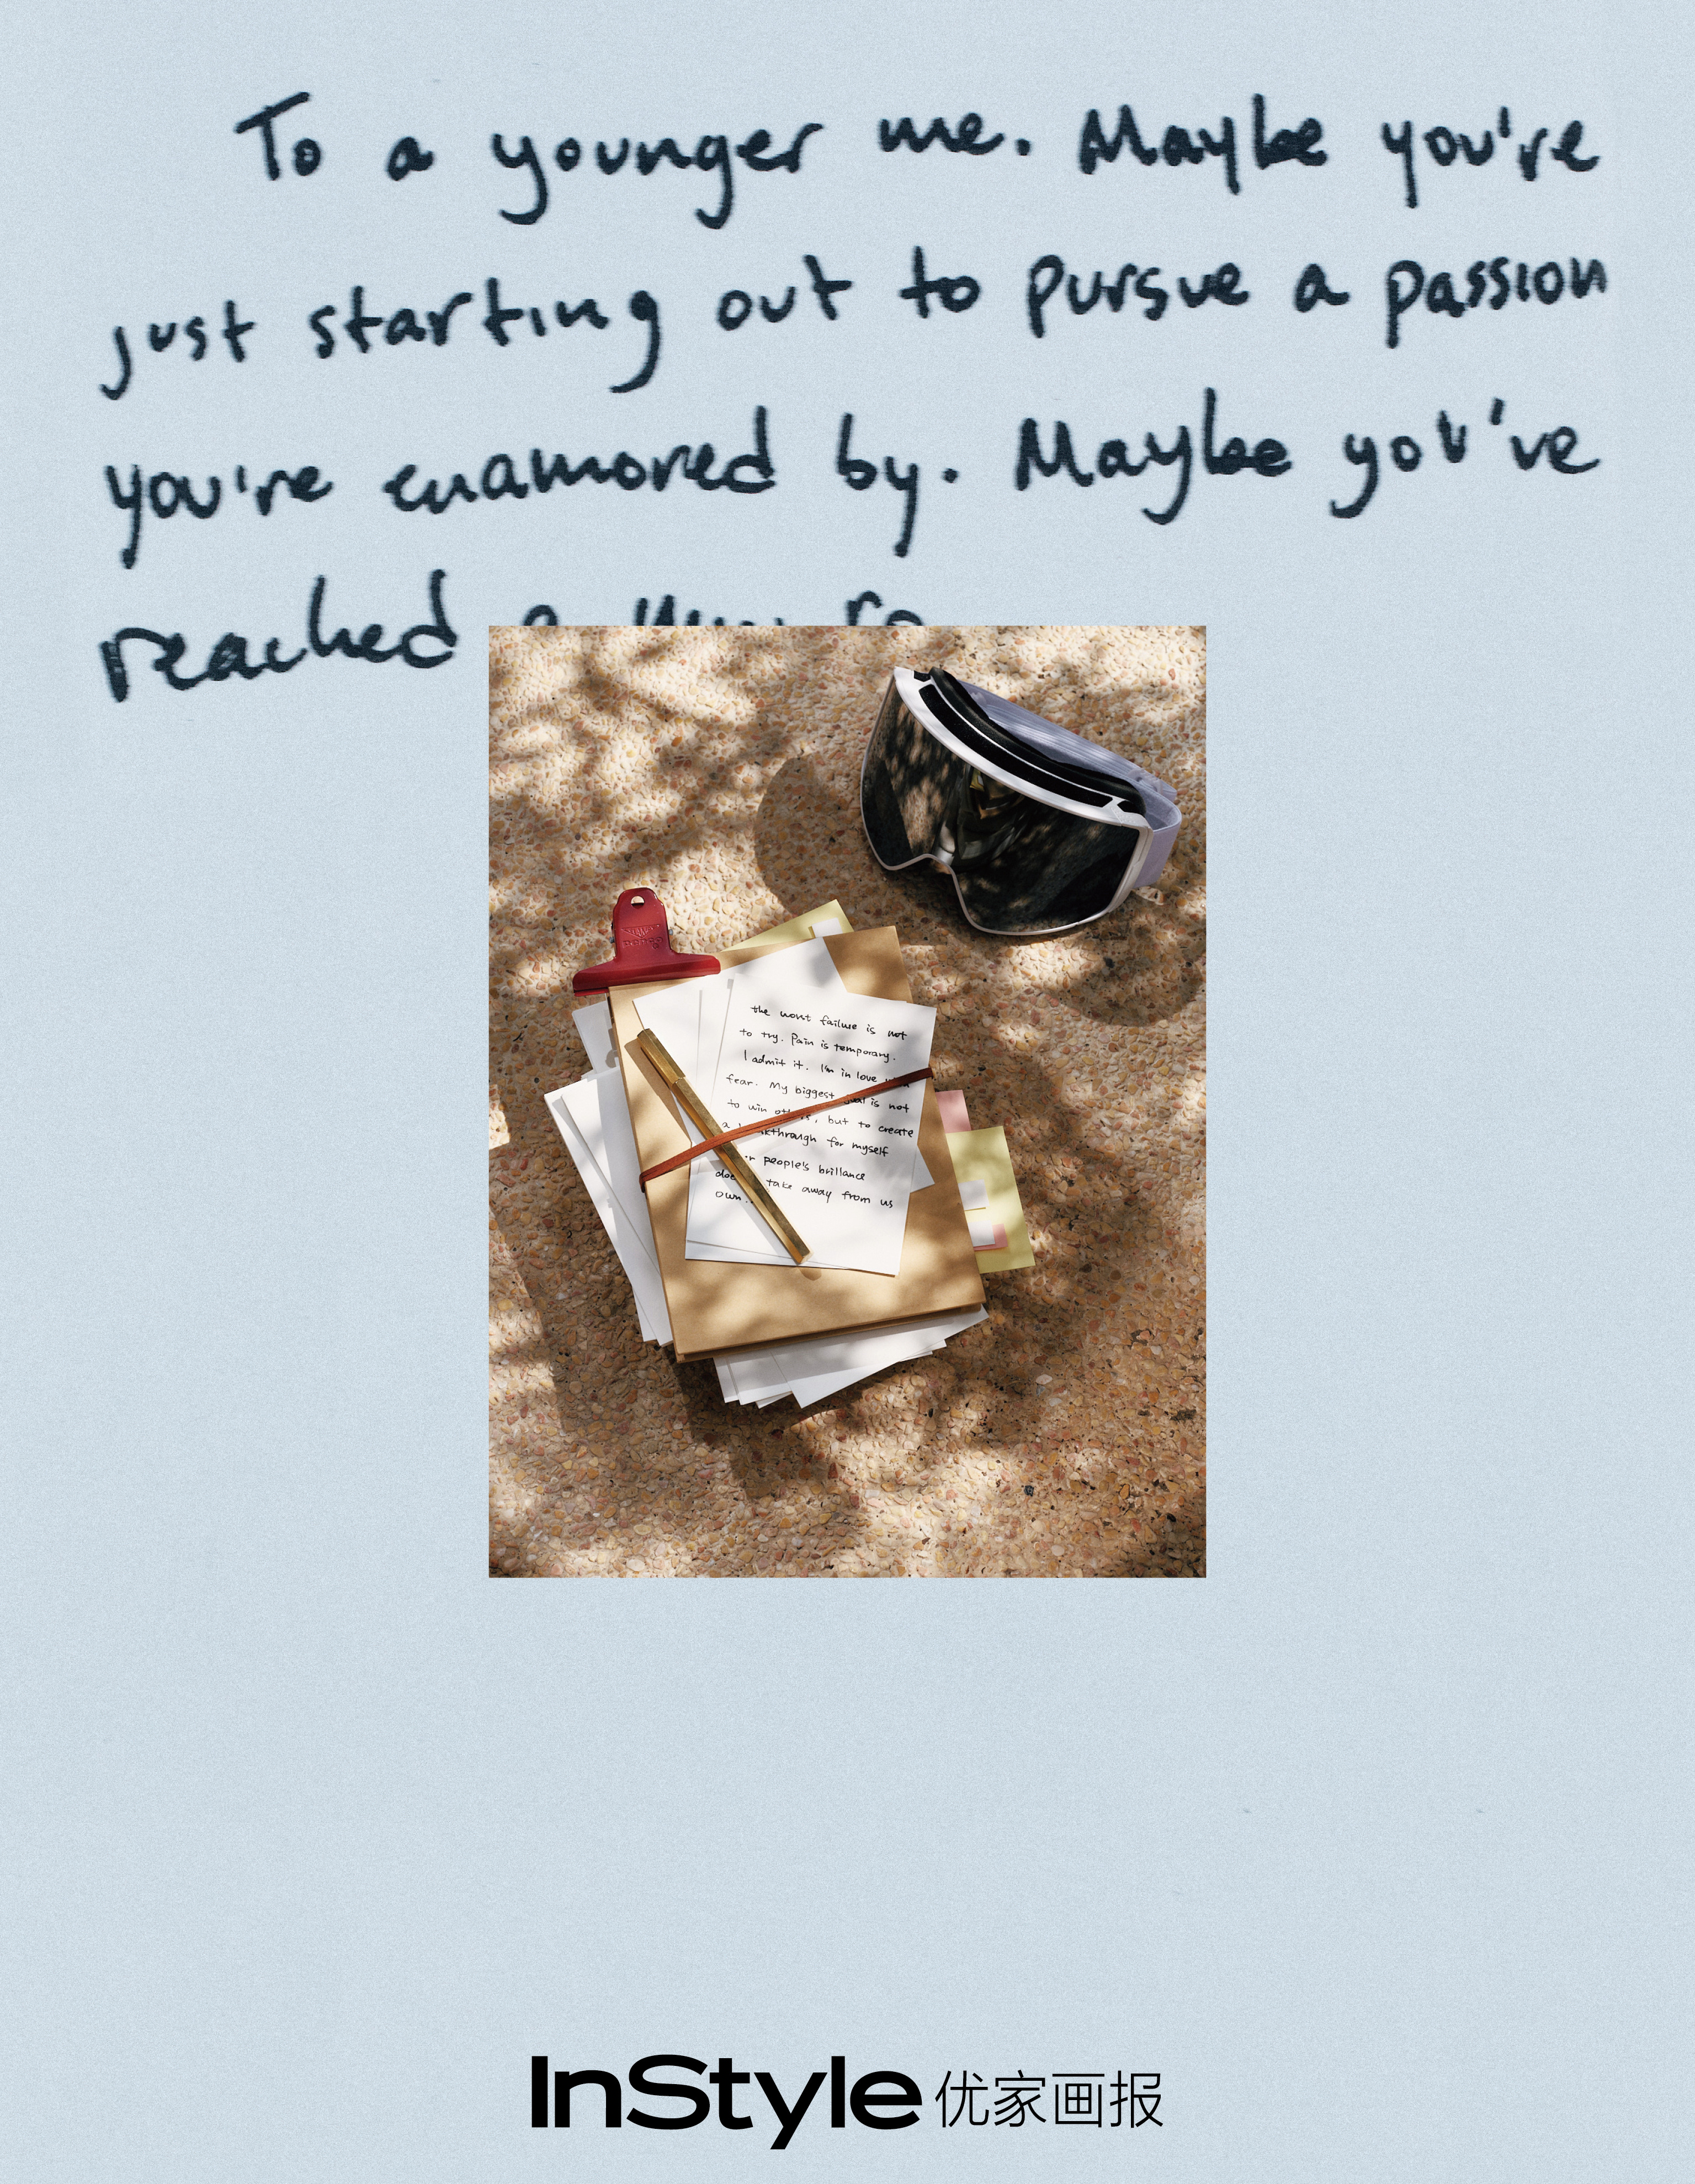 To a younger me. Maybe you're
just starting out to pursue a passion
you're enamored by. Maybe you've
reached a
the worst failure is not
to try. Pain is temporary.
I admit it. I'm in love
fear. My biggest is not
to win , but to create
a for myself
people's brillance
take away from us
own..
InStyle 优家画报